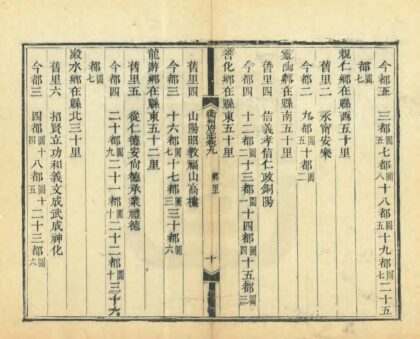 今都五 三都圖七五都圖八十八都圖五十九都圖七二十五
都圖七
親仁鄉在縣西五十里
舊里二 永甯安樂
今都二 九都圖五十都圖二
靈山鄉在縣南五十里
舊里四 信義孝信仁政銅陽
今都四 十二都圖二十三都圖一十四都圖四十五都圖三
善化鄉在縣東五十里
舊里四 山陽昭教福山高樓
今都三 十六都圖七十七都圖三三十都圖六
龍游鄉在縣東五十二里
舊里五 從仁德安尚德承業禮德
今都四 二十都圖九二十一都圖十二十二都圖十三十六
都圖七
瀔水鄉在縣北三十里
舊里六 招賢立功和義文成武成神化
今都三 四都圖四十八都圖五二十三都圖六
鄉里
十